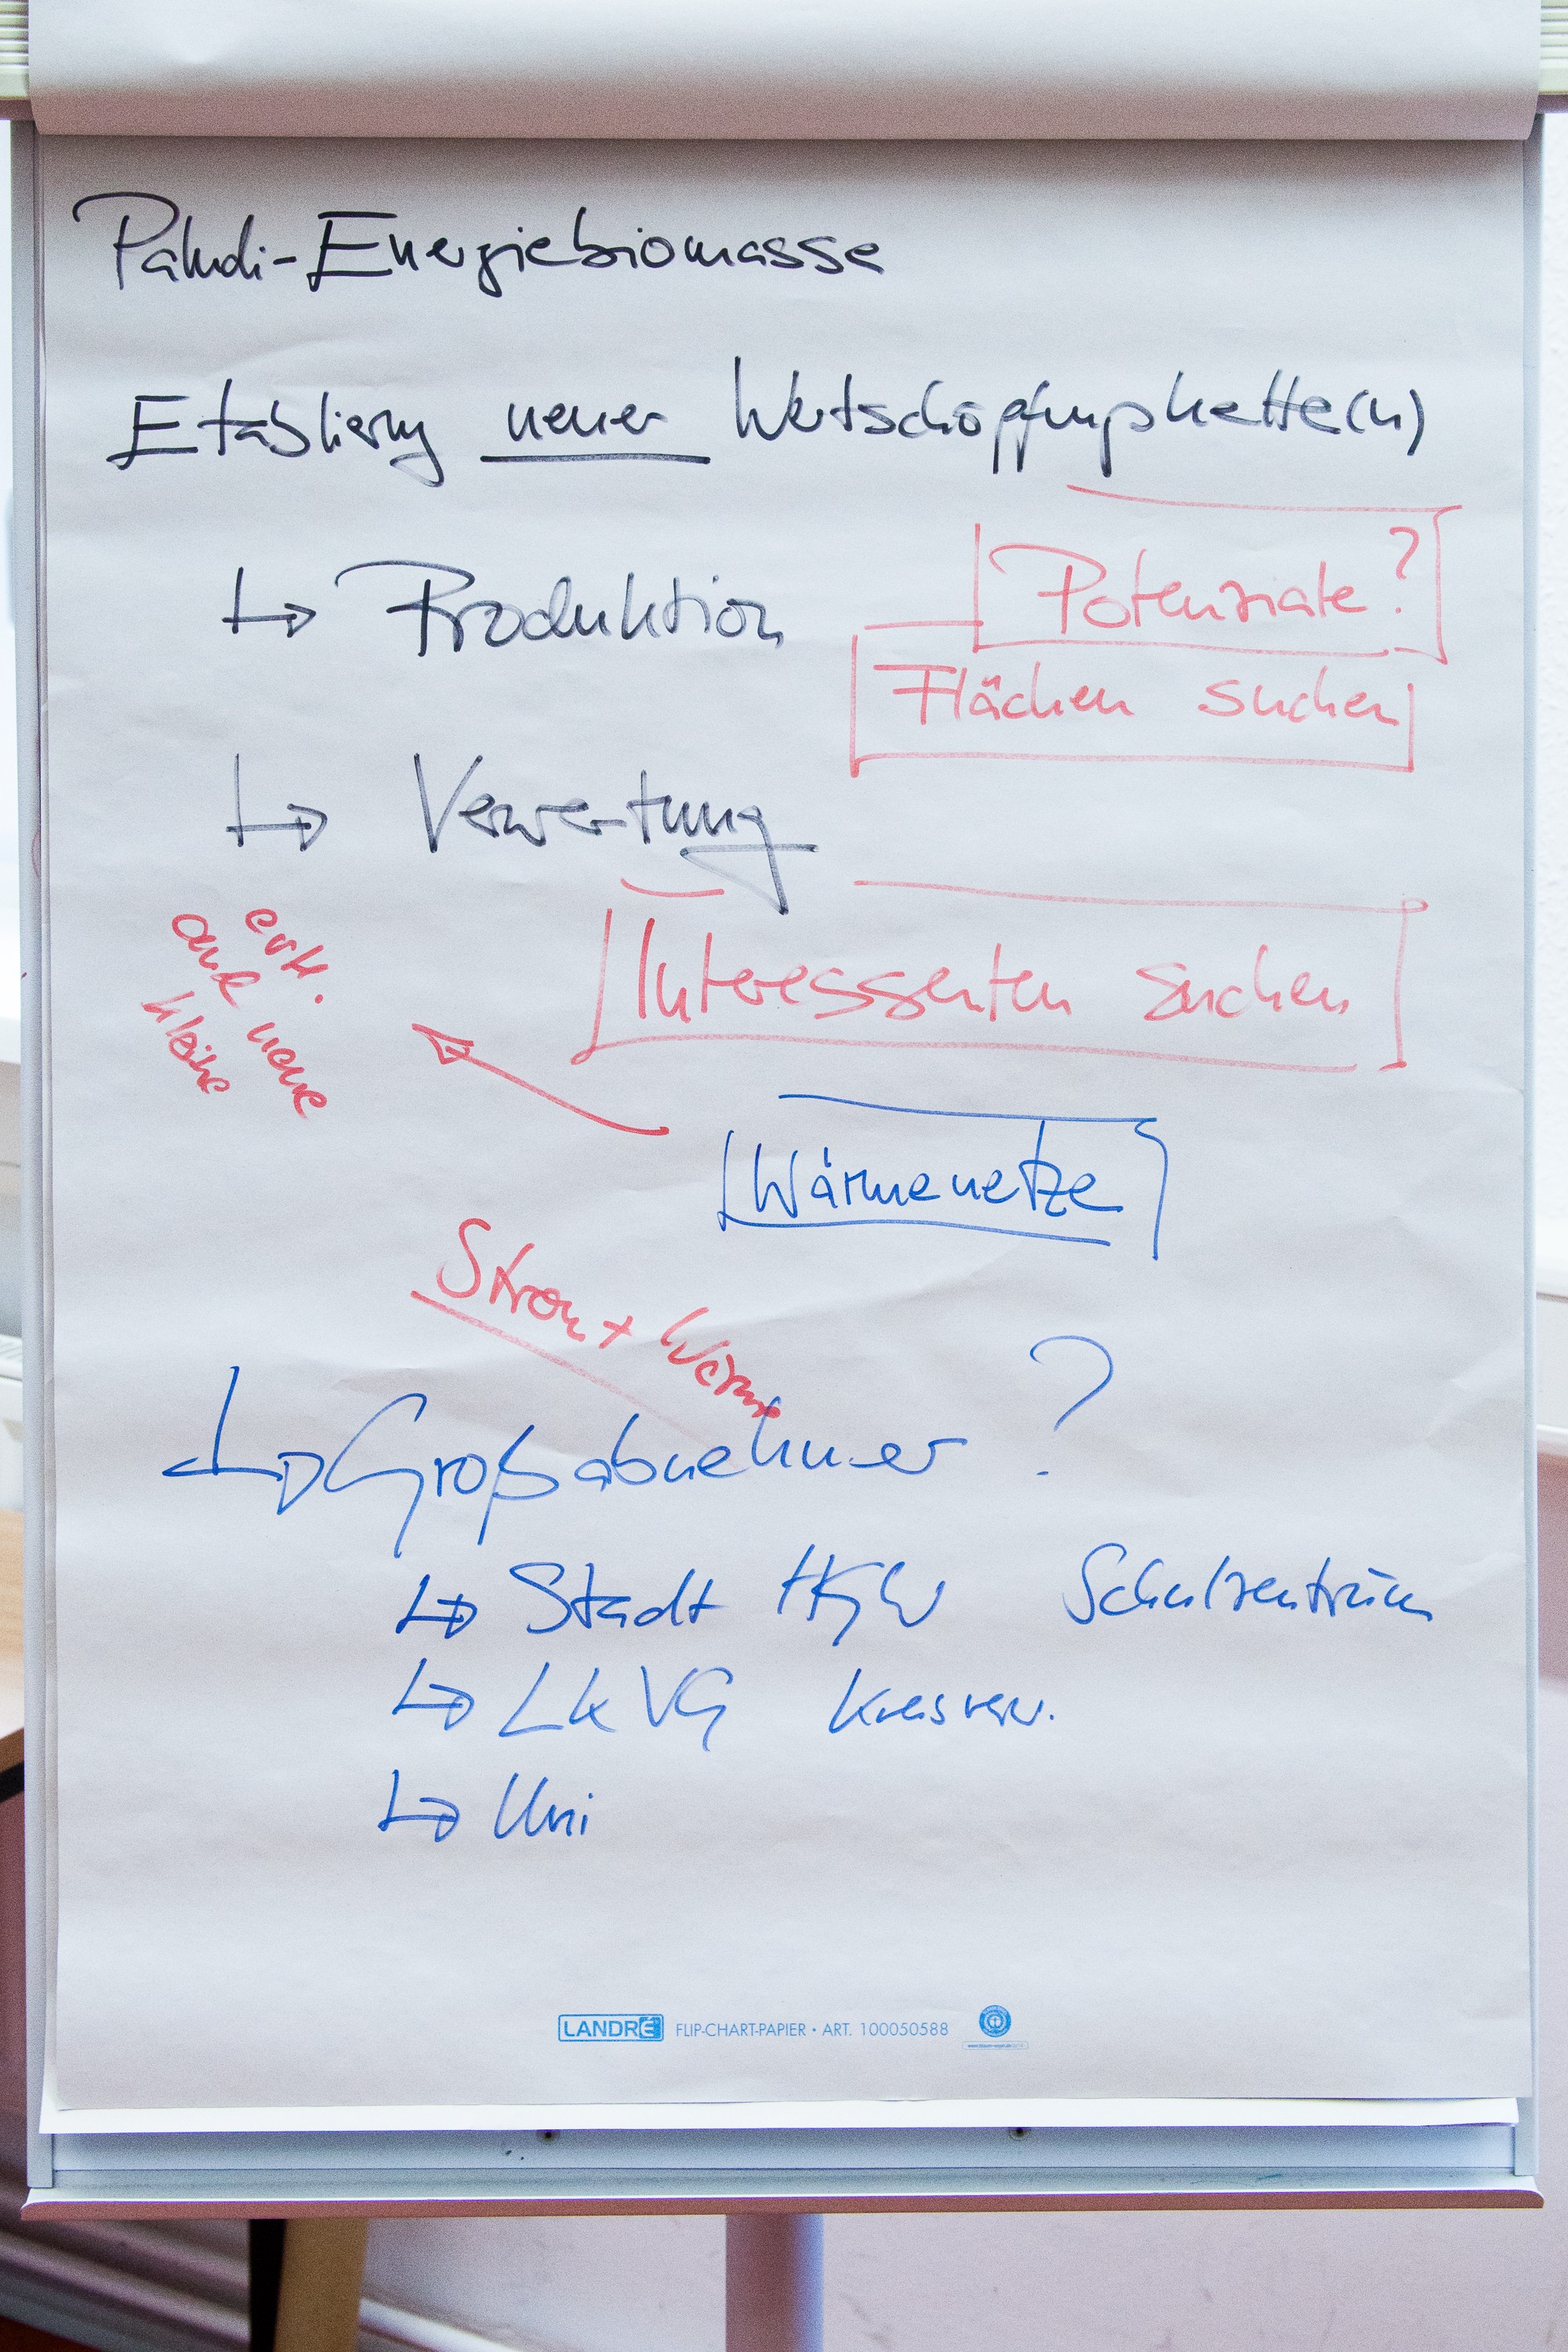 Paludi-Energiebiomasse
Etablierung neuer Wertschöpfungskette(n)
↳ Produktion
Potenziale?
Flächen suchen
↳ Verwertung
Interessenten suchen
evtl.
auch neue
kleine
Wärmenetze
Strom + Wärme
↳ Großabnehmer ?
↳ Stadt HGW Schulzentrum
↳ LK VG Kreisverw.
↳ Uni
LANDRÉ FLIP-CHART-PAPIER • ART. 100050588